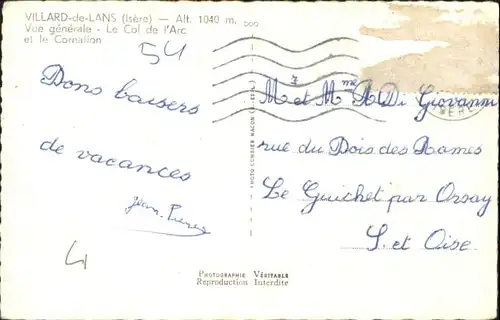 VILLARD-de-LANS (Isère) — Alt. 1040 m.
Vue générale - Le Col de l'Arc
et le Cornafion
54
Bons baisers
de vacances
Jean Pierre
M et Mme A Di Giovanni
rue du Bois des Rames
Le Guichet par Orsay
S. et Oise
PHOTO COMBIER MACON
4
PHOTOGRAPHIE VÉRITABLE
Reproduction Interdite